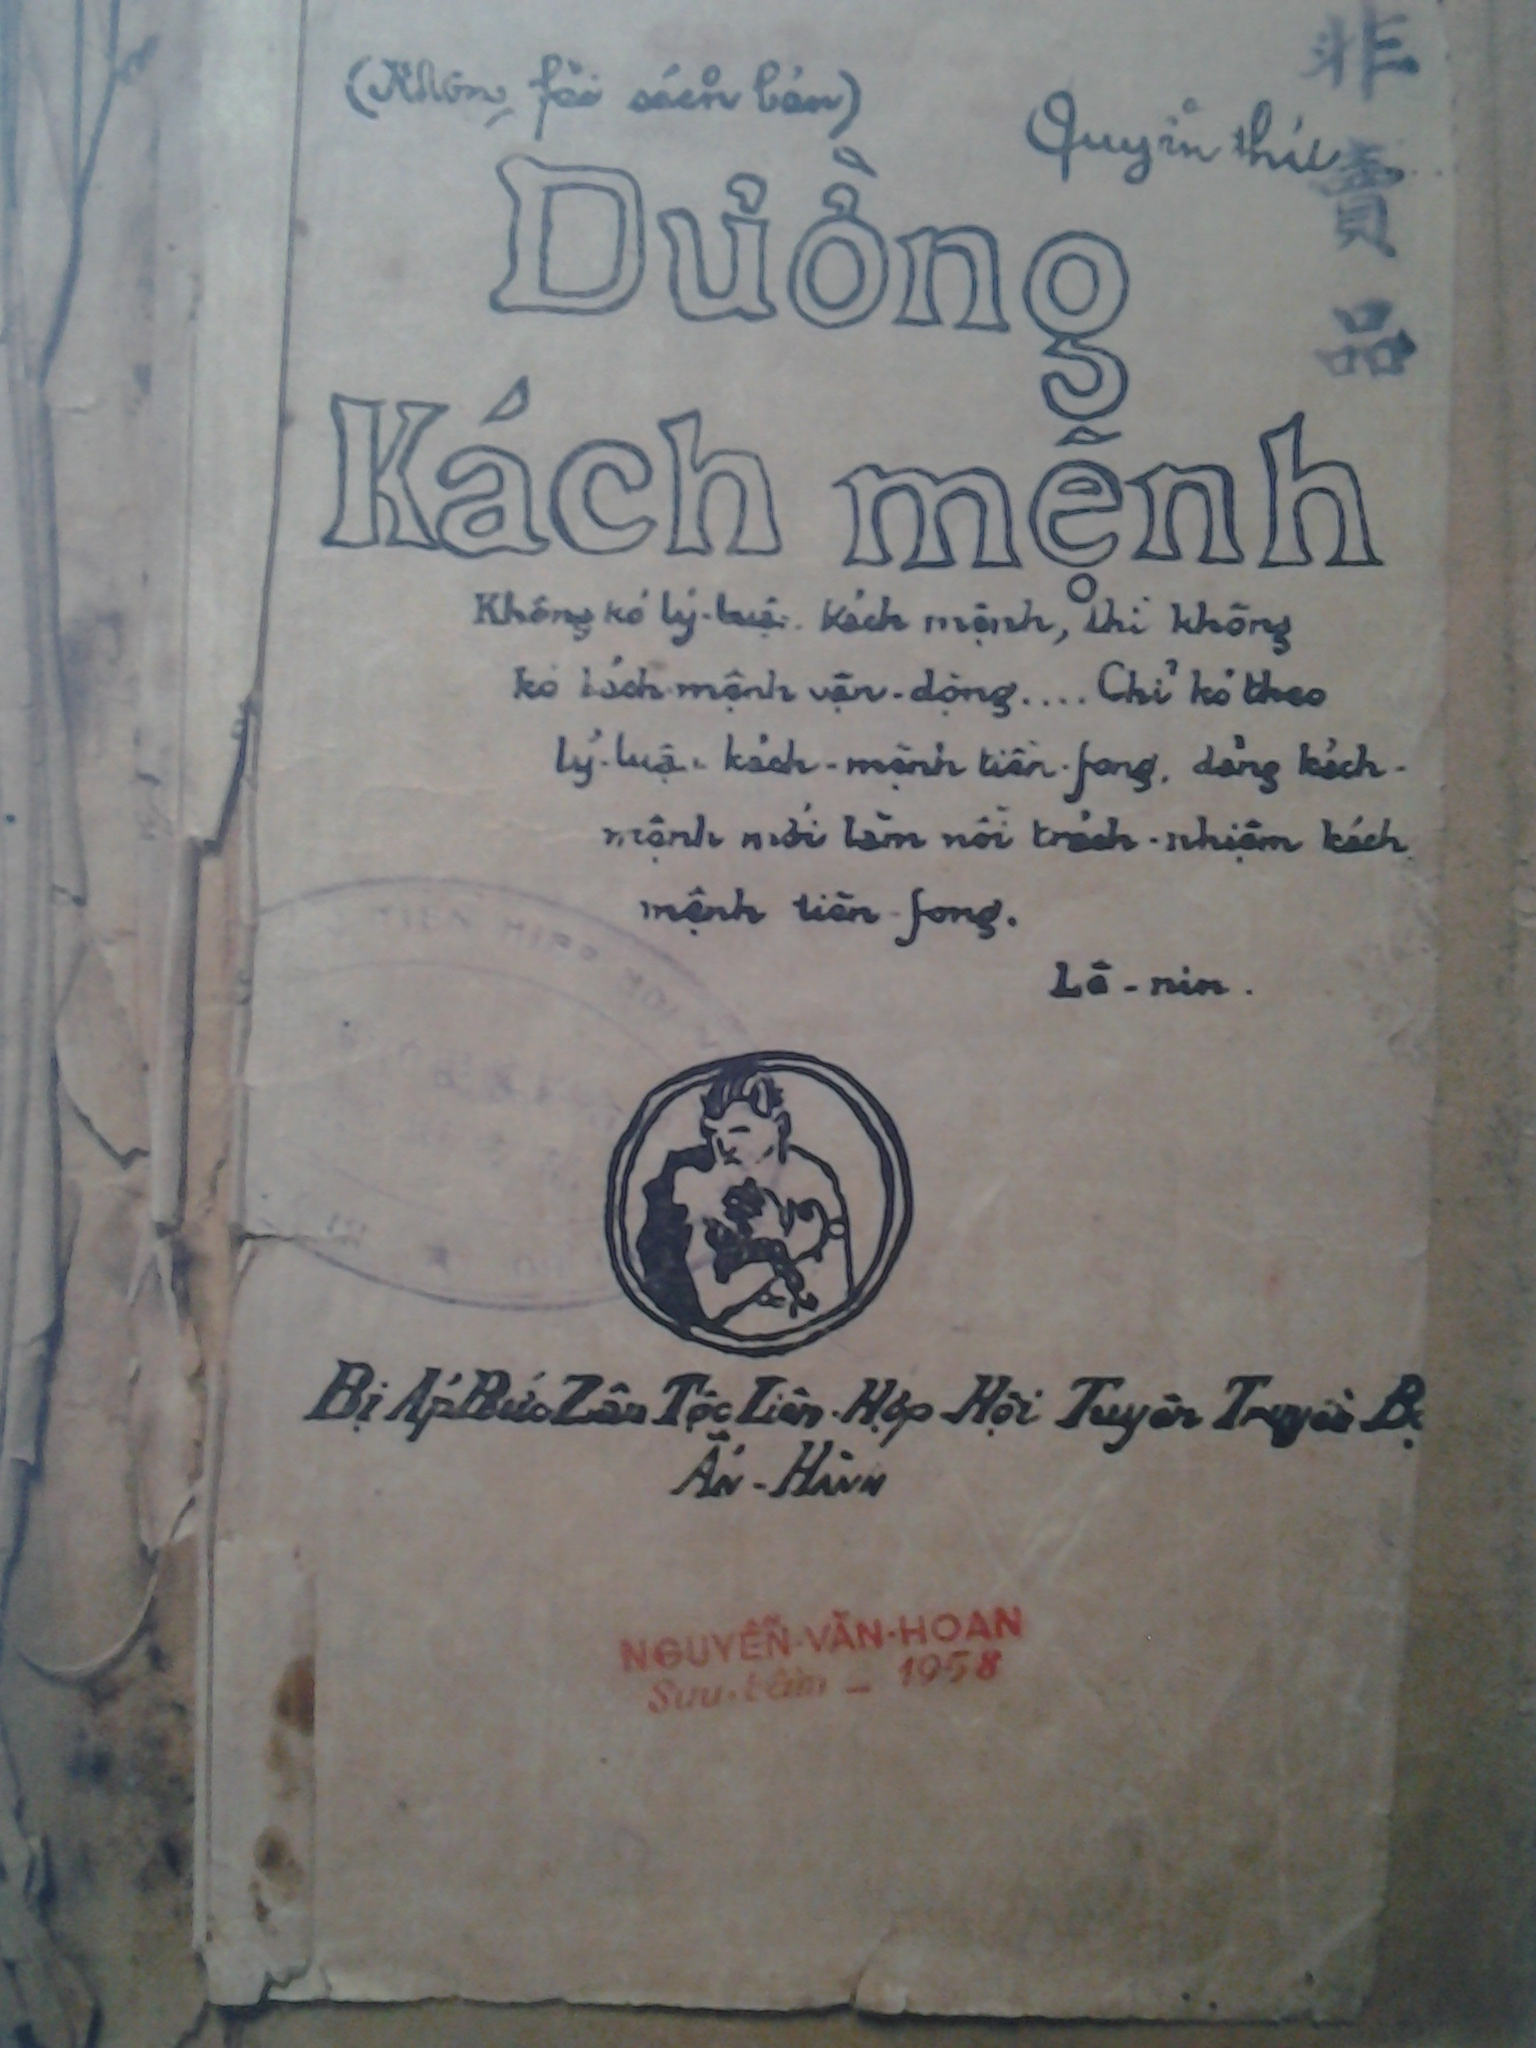 (Không fải sách bán)
Quyển thứ
非賣品
Đường
Kách mệnh
Không kó lý-luận kách mệnh, thì không
kó kách mệnh vận-động.... Chỉ kó theo
lý-luận kách-mệnh tiền-fong, đảng kách-
mệnh mới làm nổi trách-nhiệm kách
mệnh tiền-fong.
Lê-nin.
Bị Áp Bức Zân Tộc Liên-Hợp Hội Tuyên Truyền Bộ
Ấn-Hành
NGUYỄN-VĂN-HOAN
Sưu-tầm - 1958